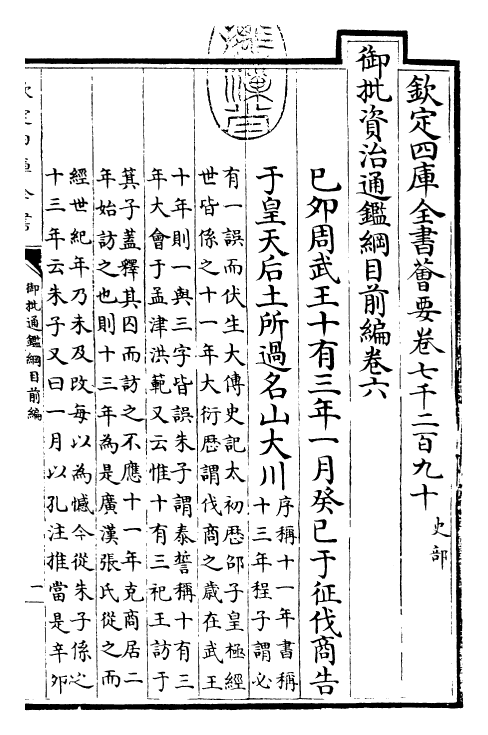 欽定四庫全書薈要卷七千二百九十
史部
御批資治通鑑綱目前編卷六
已夘周武王十有三年一月癸巳于征伐商告
于皇天后土所過名山大川
序稱十一年書稱
十三年程子謂必
有一誤而伏生大傳史記太初厯邵子皇極經
世皆係之十一年大衍厯謂伐商之歲在武王
十年則一與三字皆誤朱子謂泰誓稱十有三
年大會于孟津洪範又云惟十有三祀王訪于
箕子蓋釋其囚而訪之不應十一年克商居二
年始訪之也則十三年為是廣漢張氏從之而
經世紀年乃未及改每以為憾今從朱子係之
十三年云朱子又曰一月以孔注推當是辛夘
御批通鑑綱目前編
一